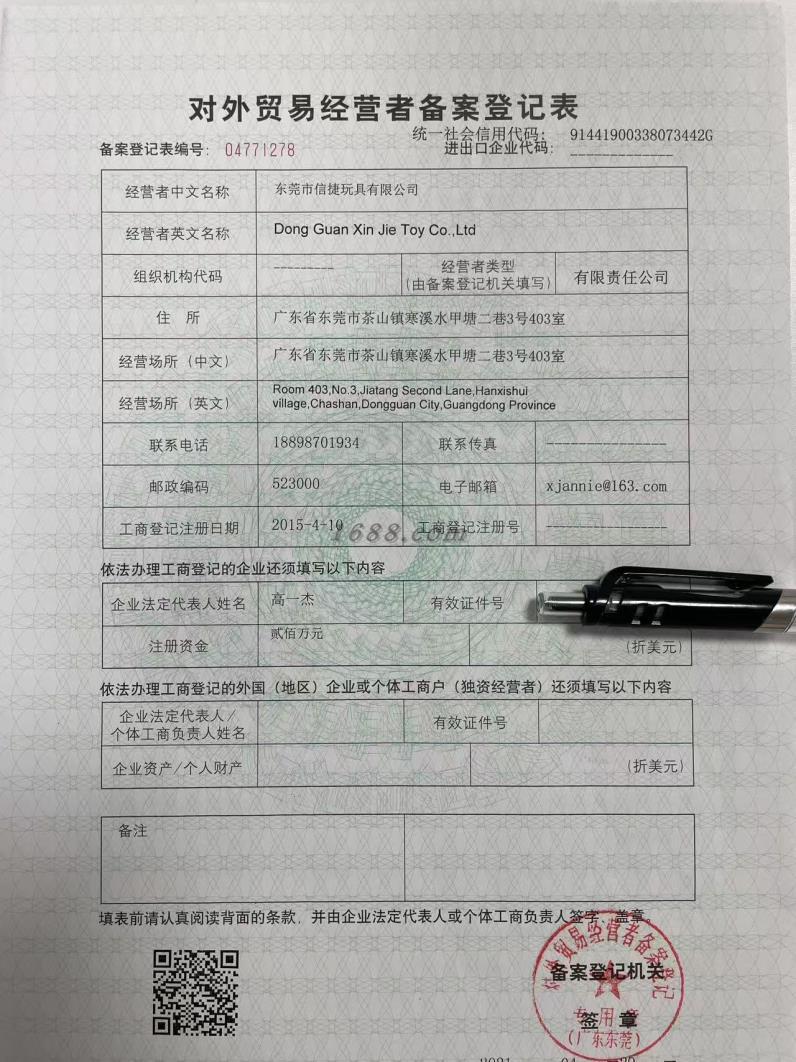 对外贸易经营者备案登记表
统一社会信用代码： 91441900338073442G
备案登记表编号： 04771278 进出口企业代码：
经营者中文名称 东莞市信捷玩具有限公司
经营者英文名称 Dong Guan Xin Jie Toy Co.,Ltd
组织机构代码 --------- 经营者类型
(由备案登记机关填写) 有限责任公司
住 所 广东省东莞市茶山镇寒溪水甲塘二巷3号403室
经营场所（中文） 广东省东莞市茶山镇寒溪水甲塘二巷3号403室
经营场所（英文） Room 403,No.3,Jiatang Second Lane,Hanxishui
village,Chashan,Dongguan City,Guangdong Province
联系电话 18898701934 联系传真 ---------------
邮政编码 523000 电子邮箱 xjannie@163.com
工商登记注册日期 2015-4-10 工商登记注册号 ---------------
1688.com
依法办理工商登记的企业还须填写以下内容
企业法定代表人姓名 高一杰 有效证件号
注册资金 贰佰万元 (折美元)
依法办理工商登记的外国（地区）企业或个体工商户（独资经营者）还须填写以下内容
企业法定代表人/
个体工商负责人姓名 有效证件号
企业资产/个人财产 (折美元)
备注
填表前请认真阅读背面的条款，并由企业法定代表人或个体工商负责人签字、盖章。
对外贸易经营者备案登记
备案登记机关
专用章
签 章
(广东东莞)